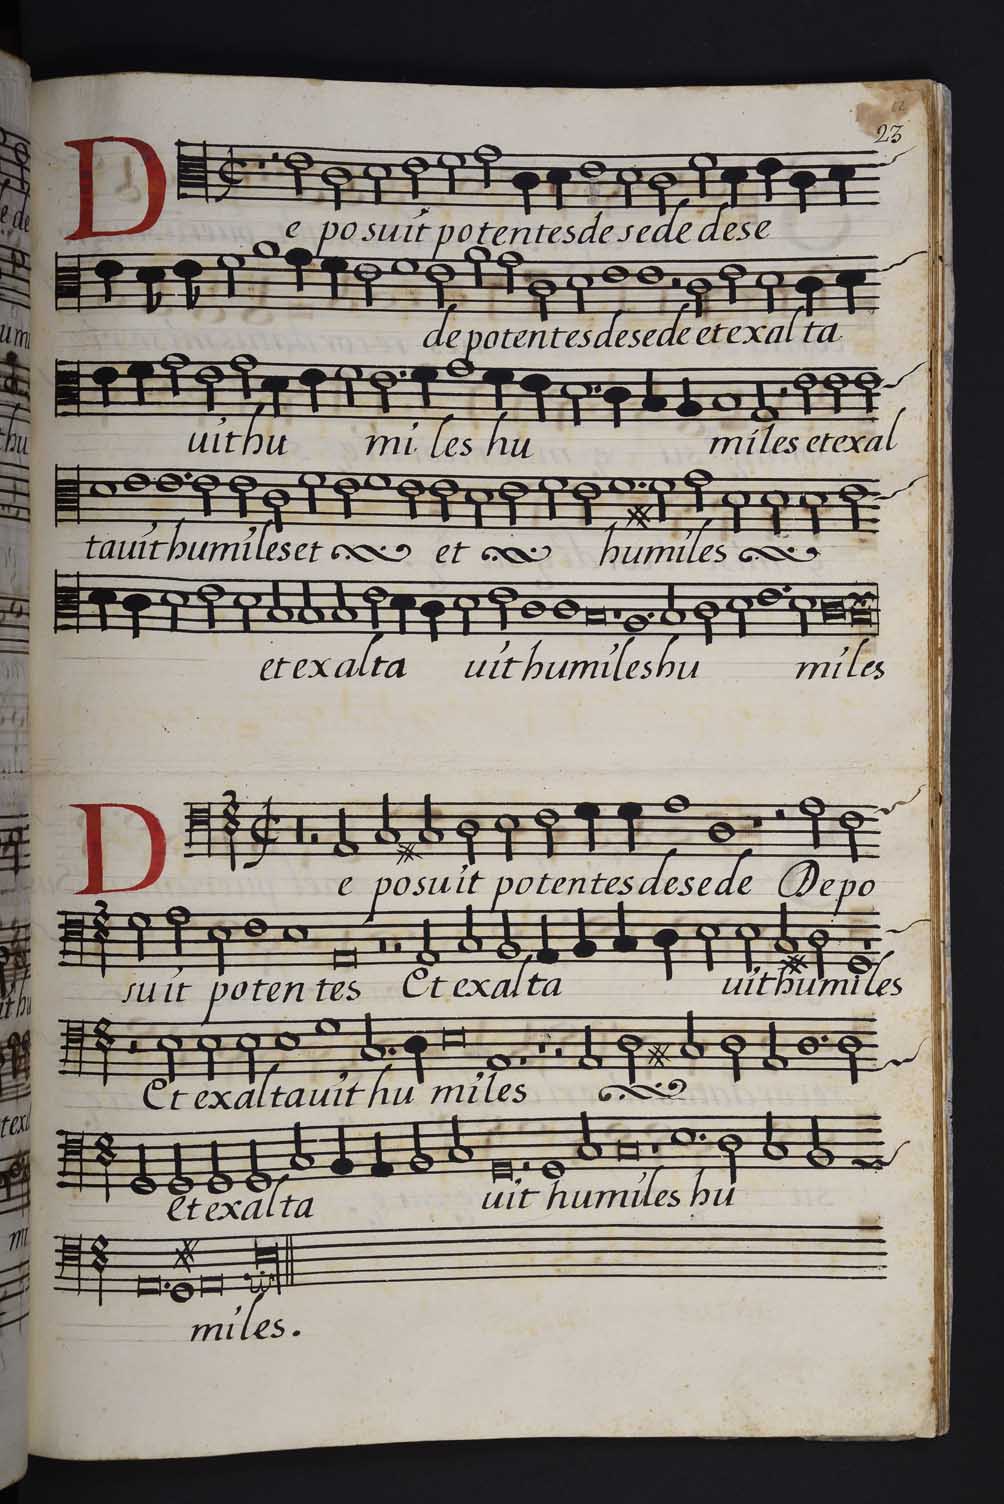 23
De posuit potentes de sede de se
de potentes de sede et exalta
uit hu mi les hu miles et exal
tauit humiles et et humiles
et exalta uit humiles hu miles
De posuit potentes de sede Depo
suit potentes Et exalta uit humiles
Et exaltauit hu miles
et exalta uit humiles hu
miles.